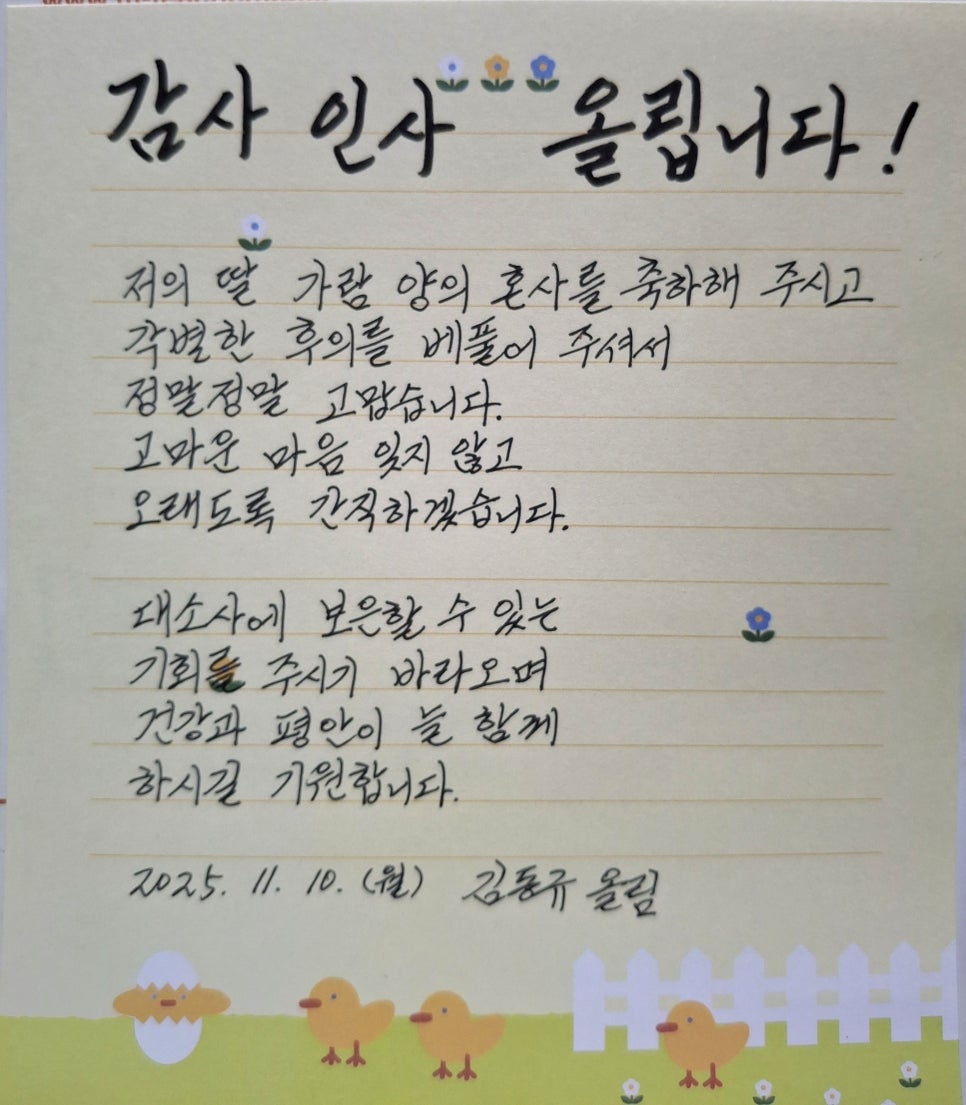 감사 인사 올립니다!
저의 딸 가람 양의 혼사를 축하해 주시고
각별한 후의를 베풀어 주셔서
정말정말 고맙습니다.
고마운 마음 잊지 않고
오래도록 간직하겠습니다.
대소사에 보은할 수 있는
기회를 주시기 바라오며
건강과 평안이 늘 함께
하시길 기원합니다.
2025. 11. 10. (월) 김동규 올림